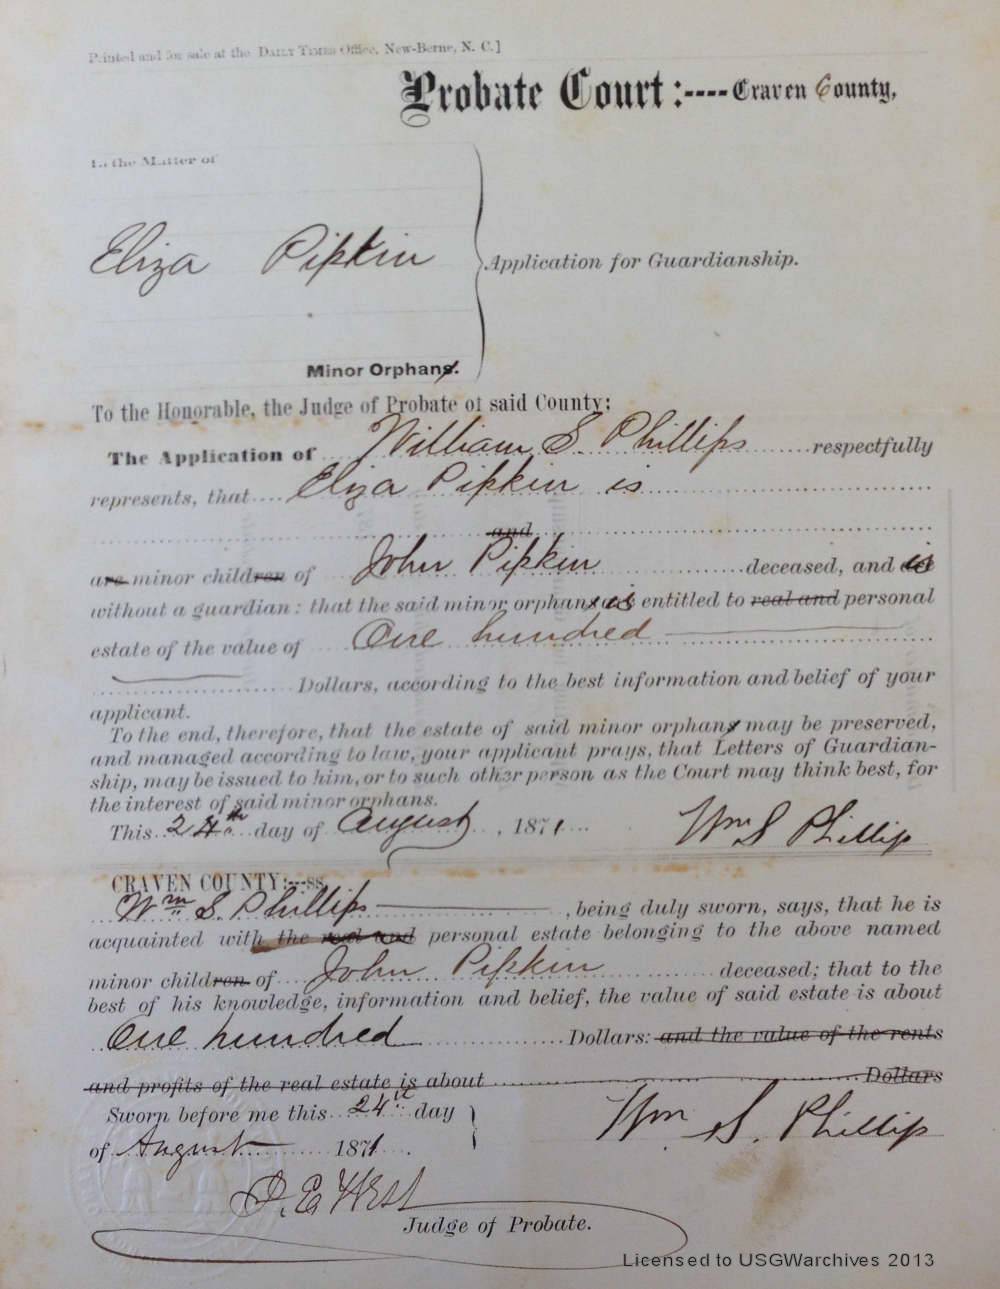 Printed and for sale at the DAILY TIMES Office, New-Berne, N. C.]
Probate Court:----Craven County,
In the Matter of
Eliza Pipkin
Application for Guardianship.
Minor Orphans.
To the Honorable, the Judge of Probate of said County:
The Application of William S. Phillips respectfully
represents, that Eliza Pipkin is
and
are minor children of John Pipkin deceased, and is
without a guardian: that the said minor orphans is entitled to real and personal
estate of the value of One hundred
Dollars, according to the best information and belief of your
applicant.
To the end, therefore, that the estate of said minor orphans may be preserved,
and managed according to law, your applicant prays, that Letters of Guardian-
ship, may be issued to him, or to such other person as the Court may think best, for
the interest of said minor orphans.
This 24th day of August, 1871 Wm S Phillips
CRAVEN COUNTY:--ss.
Wm S. Phillips, being duly sworn, says, that he is
acquainted with the real and personal estate belonging to the above named
minor children of John Pipkin deceased; that to the
best of his knowledge, information and belief, the value of said estate is about
One hundred Dollars: and the value of the rents
and profits of the real estate is about Dollars
Sworn before me this 24th day
of August 1871
Wm S. Phillips
Judge of Probate.
Licensed to USGWarchives 2013